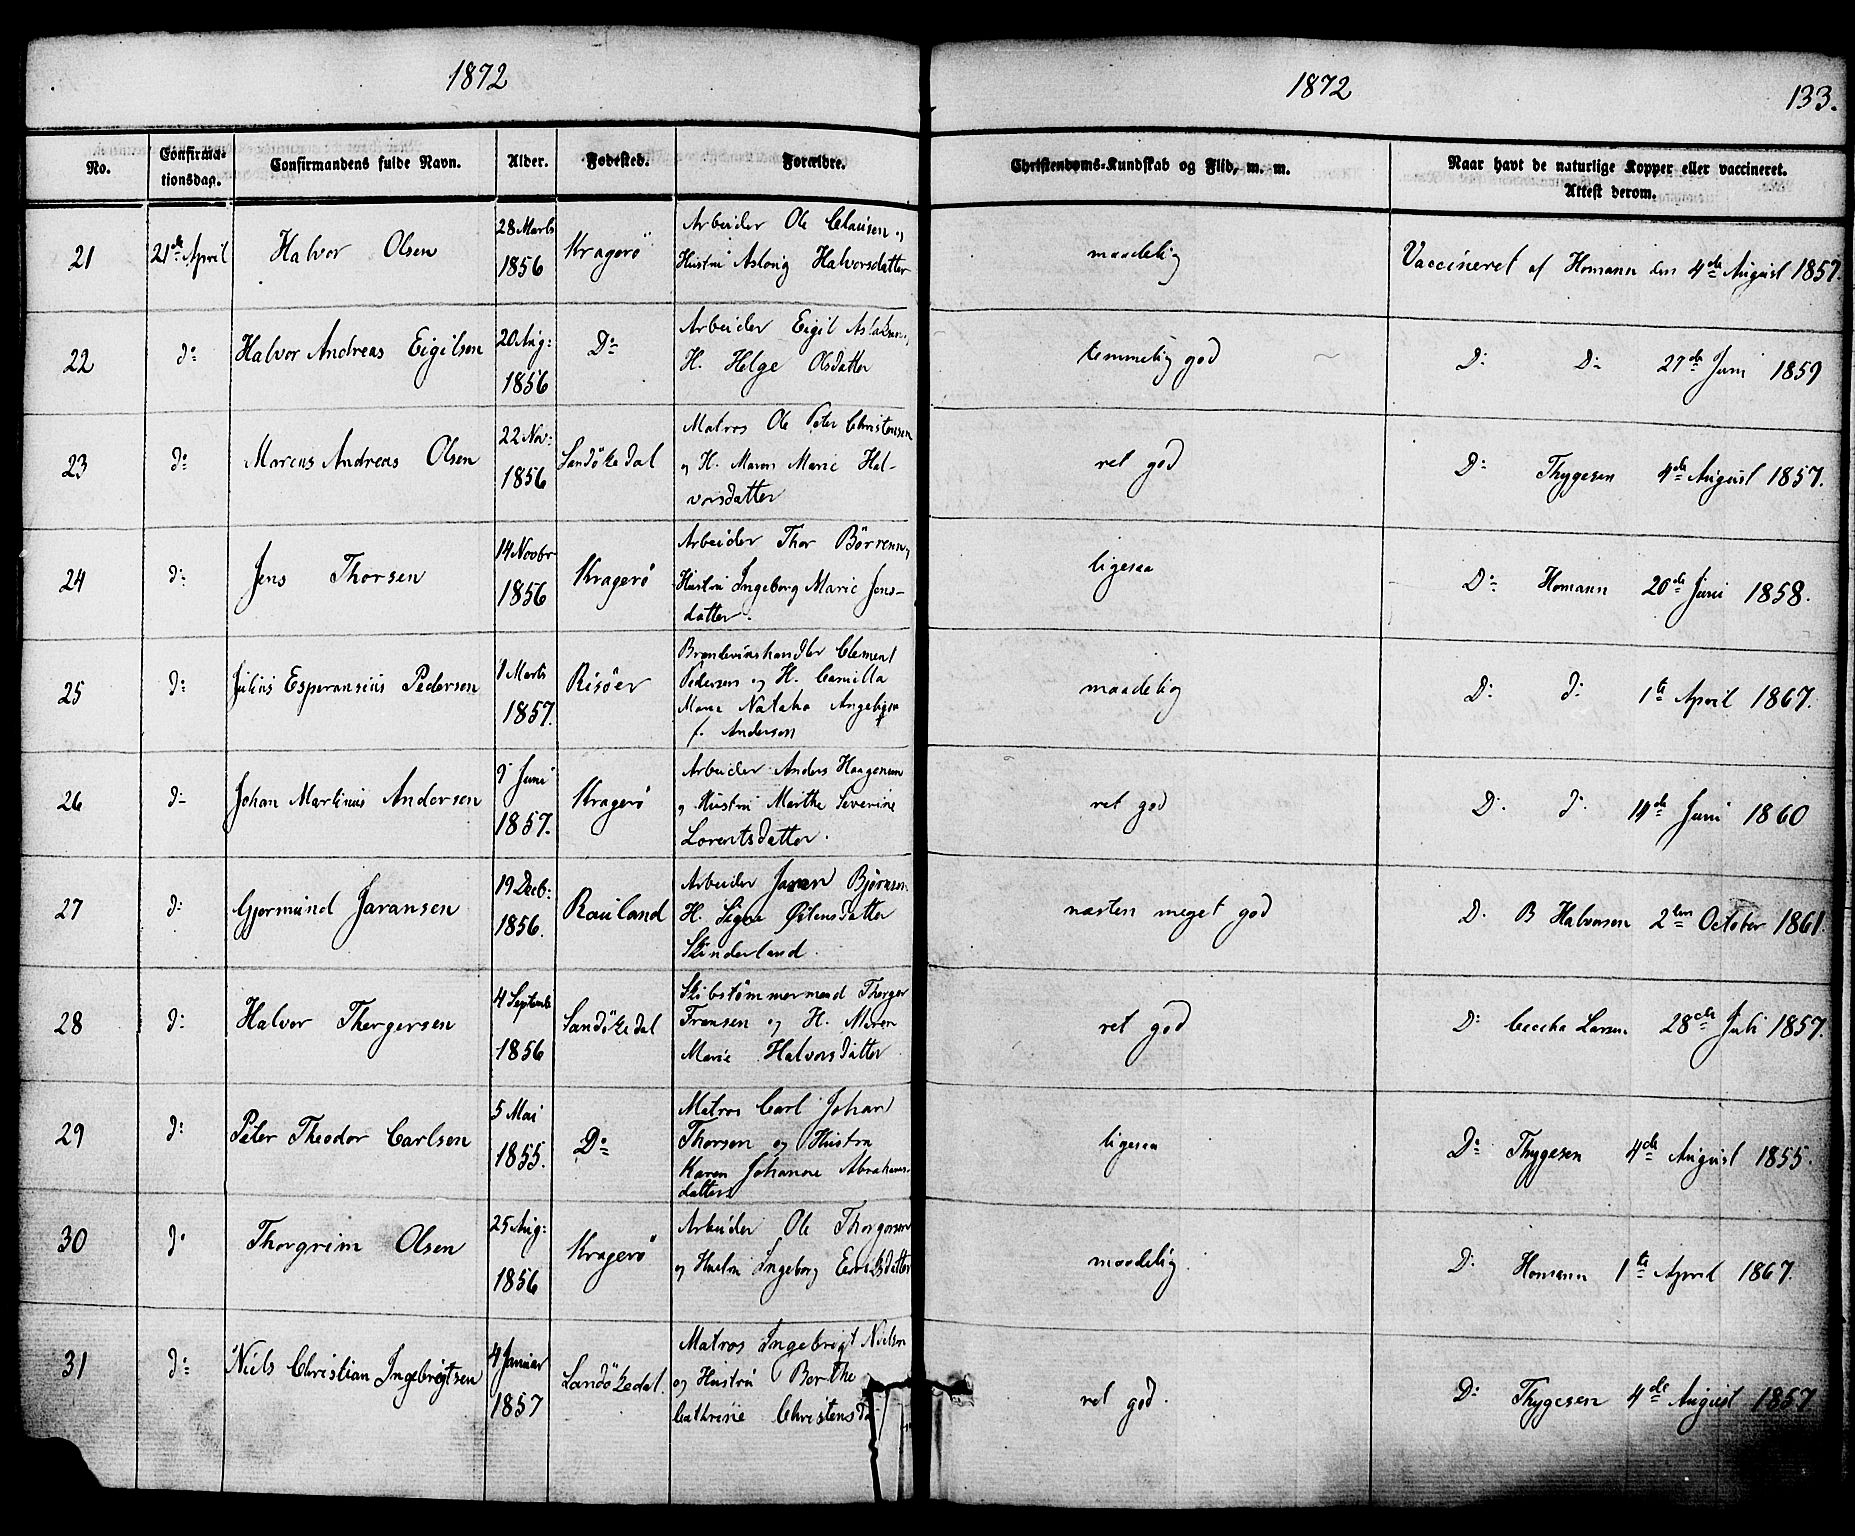 1872
No.
Confirma-
tionsdag.
Confirmandens fulde Navn.
Alder.
Fødested.
Forældre.
21
21de April
Halvor Olsen
28 Marts
1856
Kragerö
Arbeider Ole Clausen og
Hustru Aslaug Halvorsdatter
22
do
Halvor Andreas Eigilsen
20 Aug:
1856
Do
Arbeider Eigil Aslaksen,
H. Helge Olsdatter
23
do
Marcus Andreas Olsen
22 Nov:
1856
Sandökedal
Matros Ole Peter Christensen
og H. Maren Marie Hal-
vorsdatter
24
do
Jens Thorsen
14 Novbr
1856
Kragerö
Arbeider Thor Börresen,
Hustru Ingeborg Marie Jens-
datter.
25
do
Julius Esperansius Pedersen
1 Marts
1857.
Risöer
Brændevinshandler Clement
Pedersen og H. Camilla
Marie Natalia
f. Andersen
26
do
Johan Martinius Andersen
9 Juni
1857.
Kragerö
Arbeider Anders Haagensen
og Hustru Marthe Severine
Lorentsdatter.
27
do
Gjermund Jaransen
19 Decb:
1856.
Rauland
Arbeider Jaran Bjørnsen
H. Signe Østensdatter
Skinderland.
28
do
Halvor Thergersen
4 Septemb
1856
Sandökedal
Skibstømmermand Therger
Fransen og H. Maren
Marie Halvorsdatter
29
do
Peter Theodor Carlsen
5 Mai
1855.
Do
Matros Carl Johan
Thorsen og Hustru
Karen Johanne Abrahams-
datter
30
do
Thorgrim Olsen
25 Aug:
1856
Kragerö
Arbeider Ole Thorgersen
og Hustru Ingeborg Eriksdatter
31
do
Niels Christian Ingebrigtsen
4 Januar
1857
Sandökedal.
Matros Ingebrigt Nielsen
og Hustru Berthe
Cathrine
1872
133.
Christendoms-Kundskab og Flid, m. m.
Naar havt de naturlige Kopper eller vaccineret.
Attest derom.
maadelig
Vaccineret af Homann den 4de August 1857.
temmelig god
Do Do 27de Juni 1859
ret god
Do Thygesen 4de August 1857.
ligesaa
Do Homann 20de Juni 1858.
maadelig
Do do 1te April 1867.
ret god
Do. do 14de Juni 1860
næsten meget god
D. B Halvorsen 2den October 1861.
ret god
Do Cecilia Larsen 28de Juli 1857.
ligesaa
Do Thygesen 4de August 1855.
maadelig.
Do. Homann 1te April 1867.
ret god.
Do Thygesen 4de August 1857